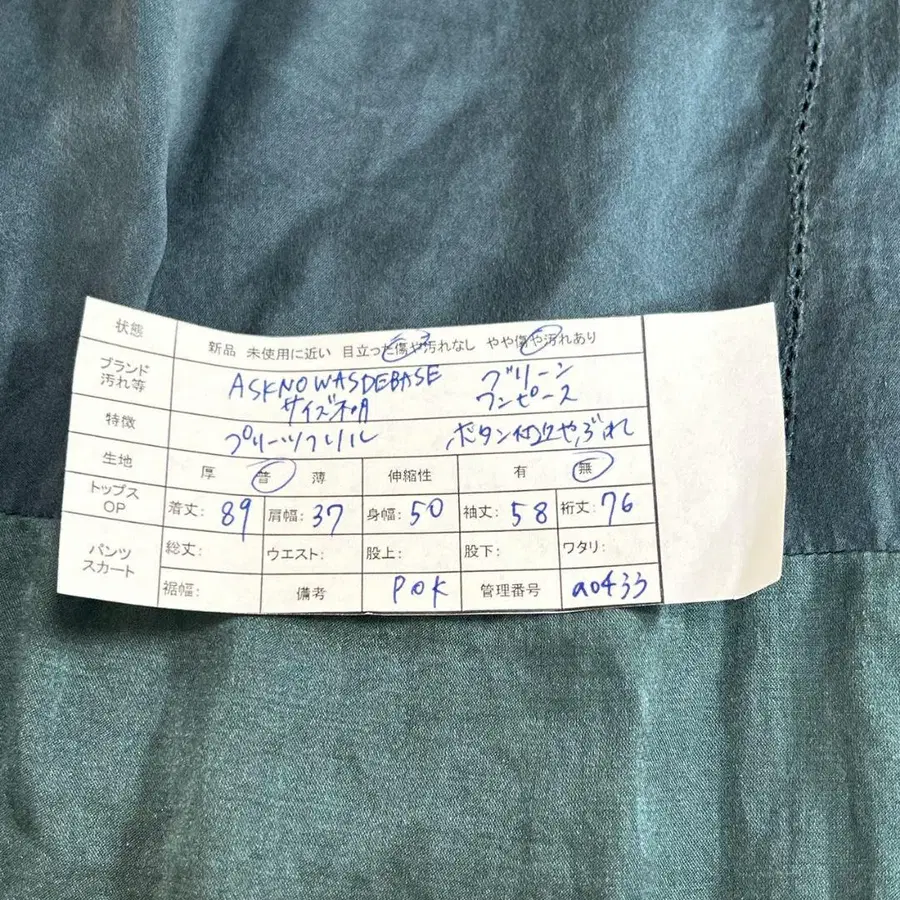 状態 新品 未使用に近い 目立った傷や汚れなし やや傷や汚れあり
ブランド 汚れ等 ASKNOWASDEBASE グリーン
サイズ不明 ワンピース
特徴 プリーツフリル ボタン付近やぶれ
生地 厚 普 薄 伸縮性 有 無
トップス OP 着丈: 89 肩幅: 37 身幅: 50 袖丈: 58 裄丈: 76
パンツ スカート 総丈: ウエスト: 股上: 股下: ワタリ:
裾幅: 備考 POK 管理番号 a0433